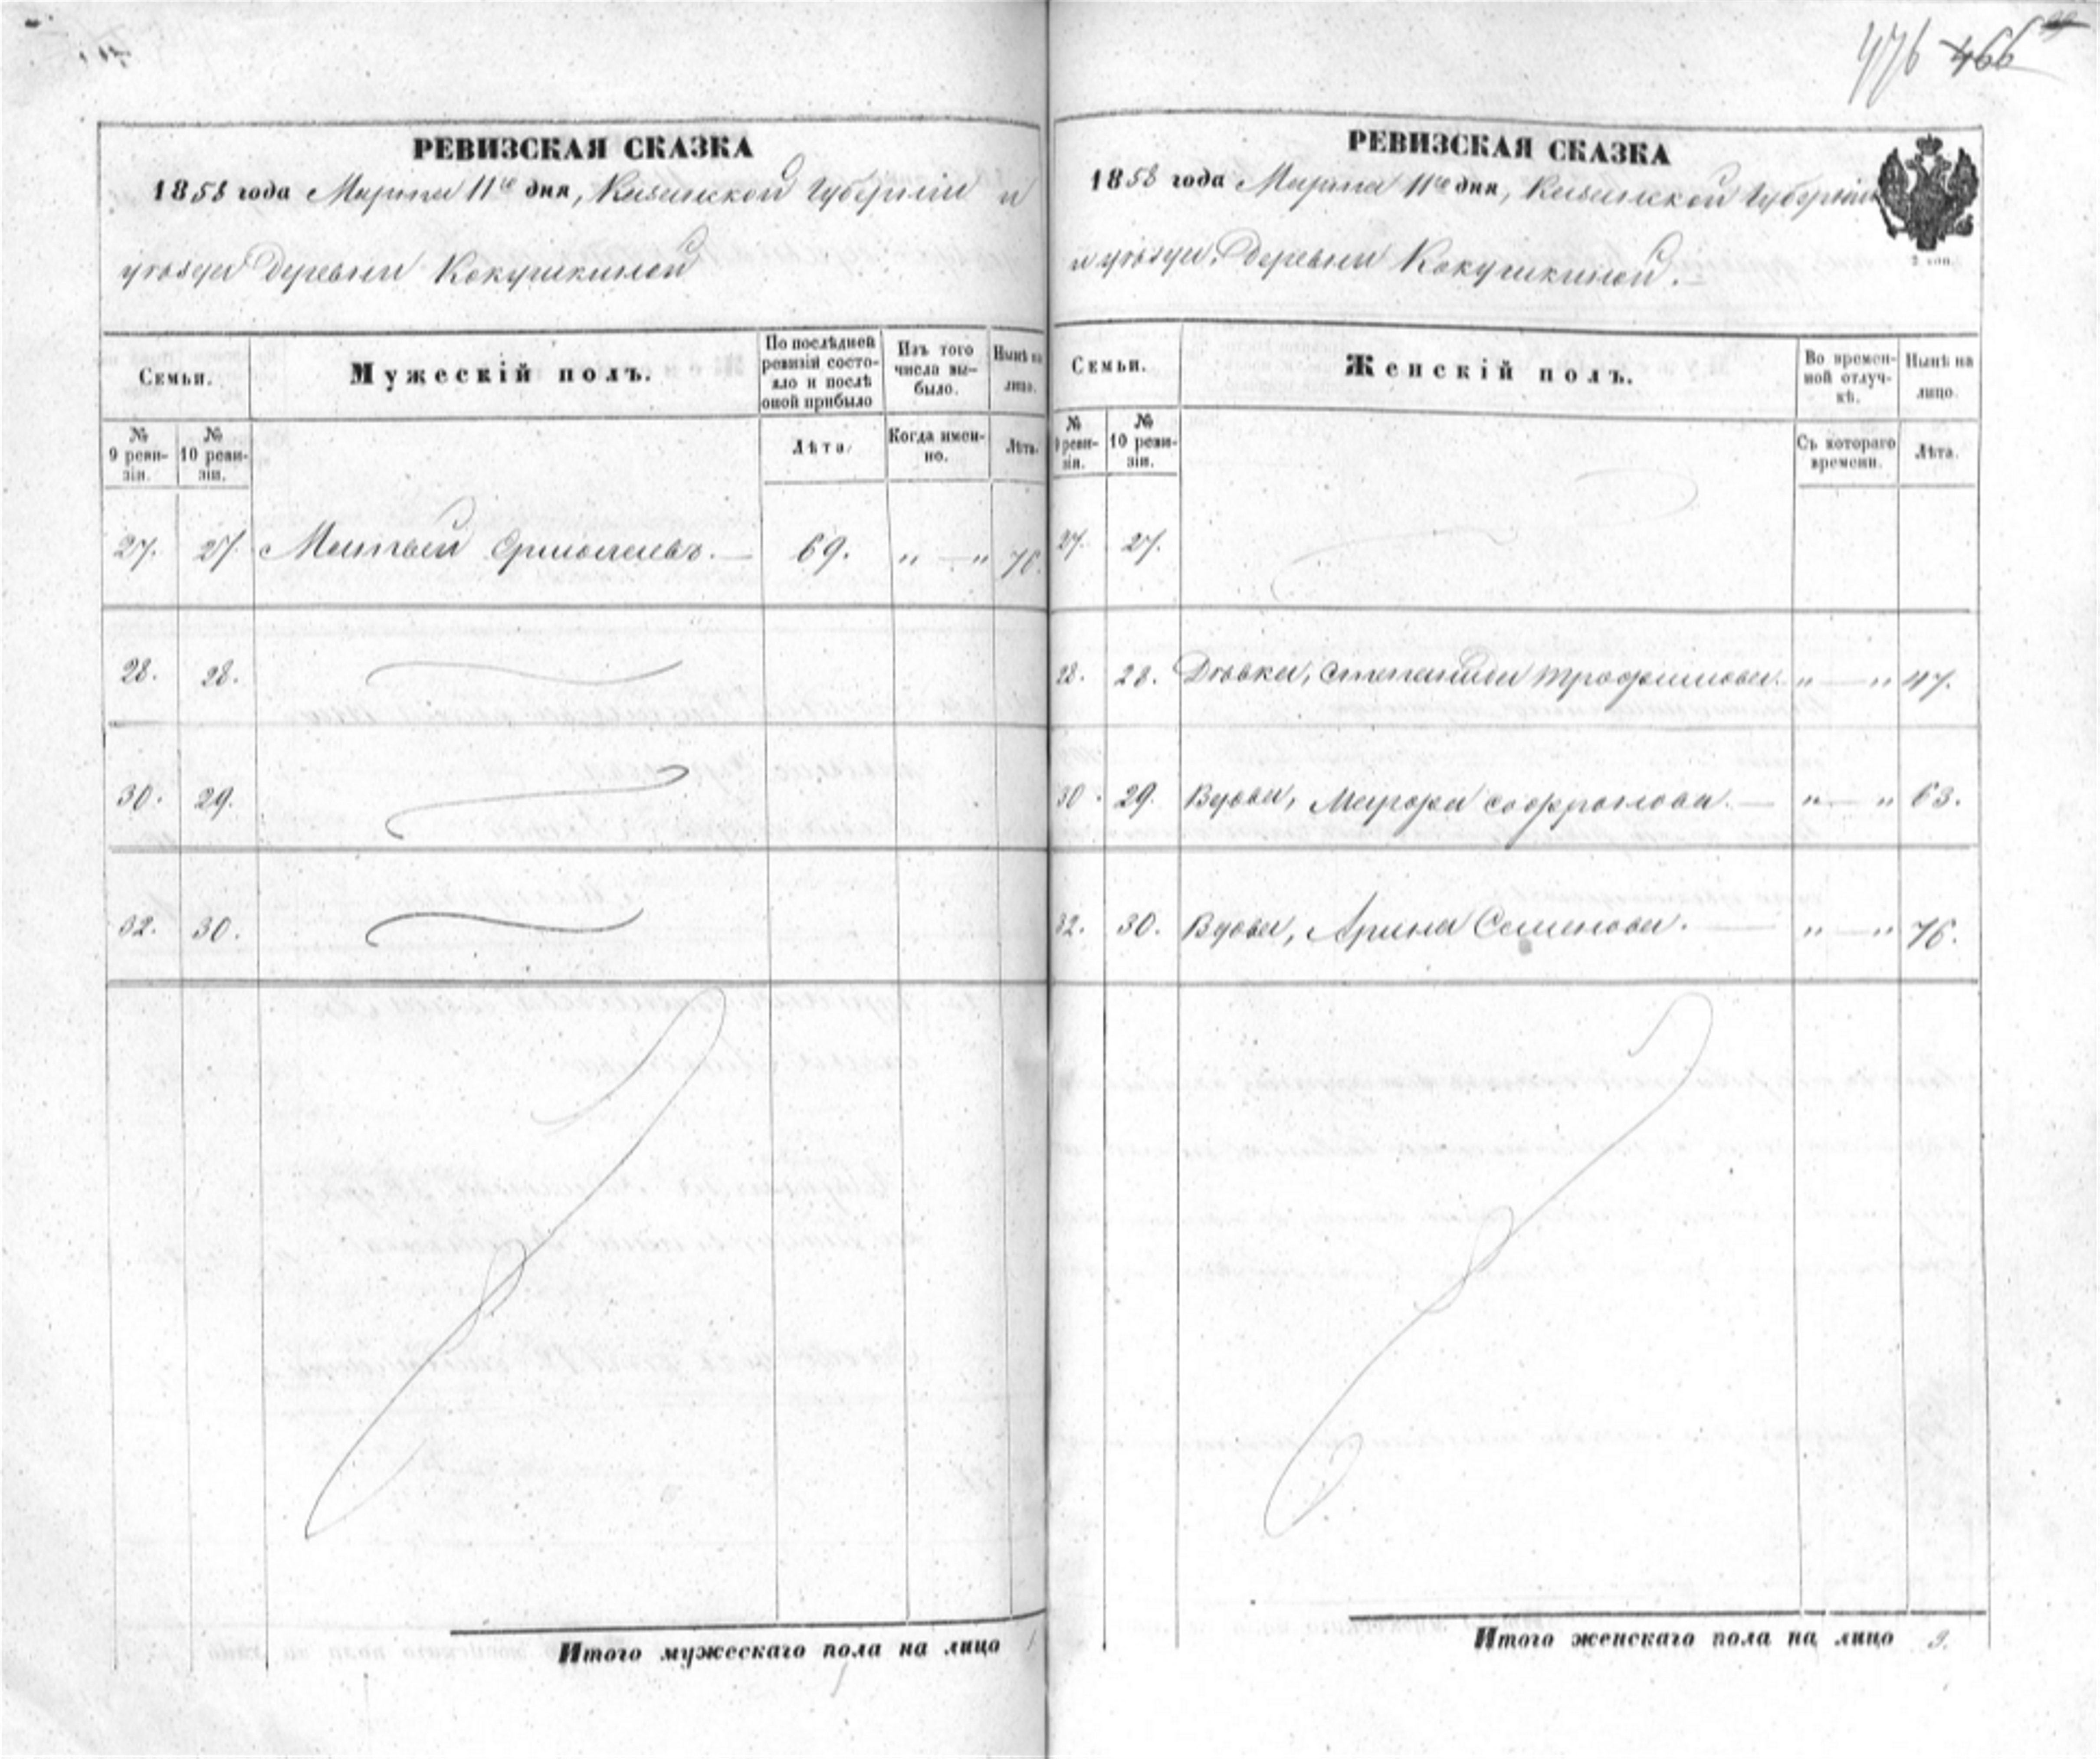 476 466
РЕВИЗСКАЯ СКАЗКА
1858 года Марта 11го дня, Казанской Губерніи и
уѣзда деревни Кокушкиной
Семьи.
Мужескій полъ.
По послѣдней ревизіи состояло и послѣ оной прибыло
Изъ того числа выбыло.
Нынѣ на лицо.
№ 9 ревизіи.
№ 10 ревизіи.
Лѣта.
Когда именно.
Лѣта.
27. 27. Матвей Ермолаевъ. — 69. „ — „ 78.
28. 28.
30. 29.
32. 30.
Итого мужескаго пола на лицо 1
РЕВИЗСКАЯ СКАЗКА
1858 года Марта 11го дня, Казанской Губерніи
и уѣзда, деревни Кокушкиной.
2 коп.
Семьи.
Женскій полъ.
Во временной отлучкѣ.
Нынѣ на лицо.
№ 9 ревизіи.
№ 10 ревизіи.
Съ котораго времени.
Лѣта.
27. 27.
28. 28. Дѣвка, Степанида Трофимова. „ — „ 47.
30. 29. Вдова, Марфа Софронова. — „ — „ 63.
32. 30. Вдова, Арина Семенова. — „ — „ 76.
Итого женскаго пола на лицо 3.